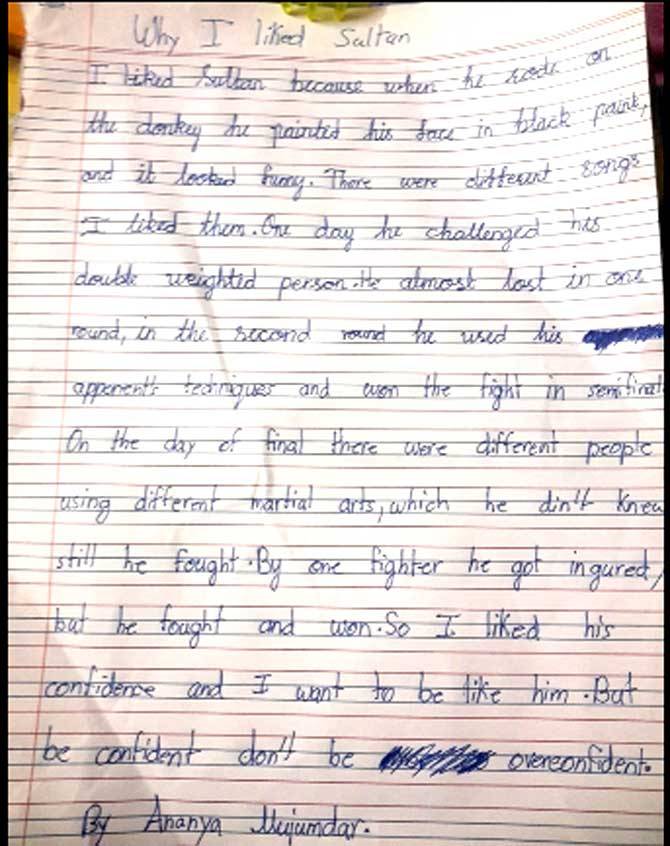 Why I liked Sultan
I liked Sultan because when he rode on
the donkey he painted his face in black paint,
and it looked funny. There were different songs
I liked them. One day he challenged his
double weighted person. He almost lost in one
round, in the second round he used his
apponent's techniques and won the fight in semifinal
On the day of final there were different people
using different martial arts, which he din't knew
still he fought. By one fighter he got ingured,
but he fought and won. So I liked his
confidence and I want to be like him. But
be confident don't be overconfident.
By Ananya Mujumdar.